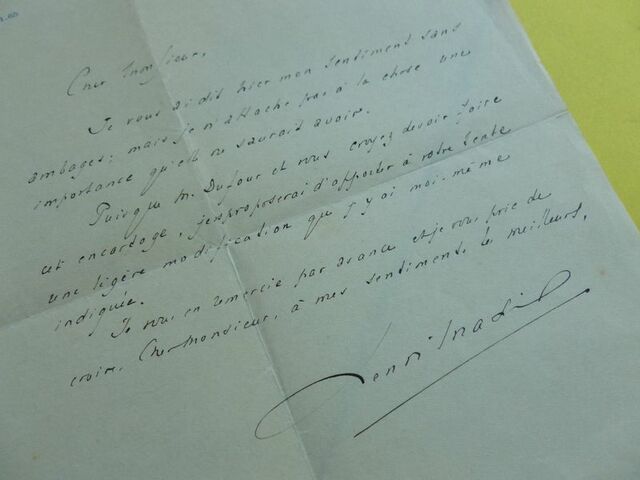 Cher Monsieur,
Je vous ai dit hier mon sentiment sans
ambages; mais je n'attache pas à la chose une
importance qu'elle ne saurait avoir.
Puisque M. Dufour et vous croyez devoir faire
cet encartage, je proposerai d'apporter à votre texte
une légère modification que j'y ai moi-même
indiquée.
Je vous en remercie par avance et je vous prie de
croire, Cher Monsieur, à mes sentiments les meilleurs.
Henri